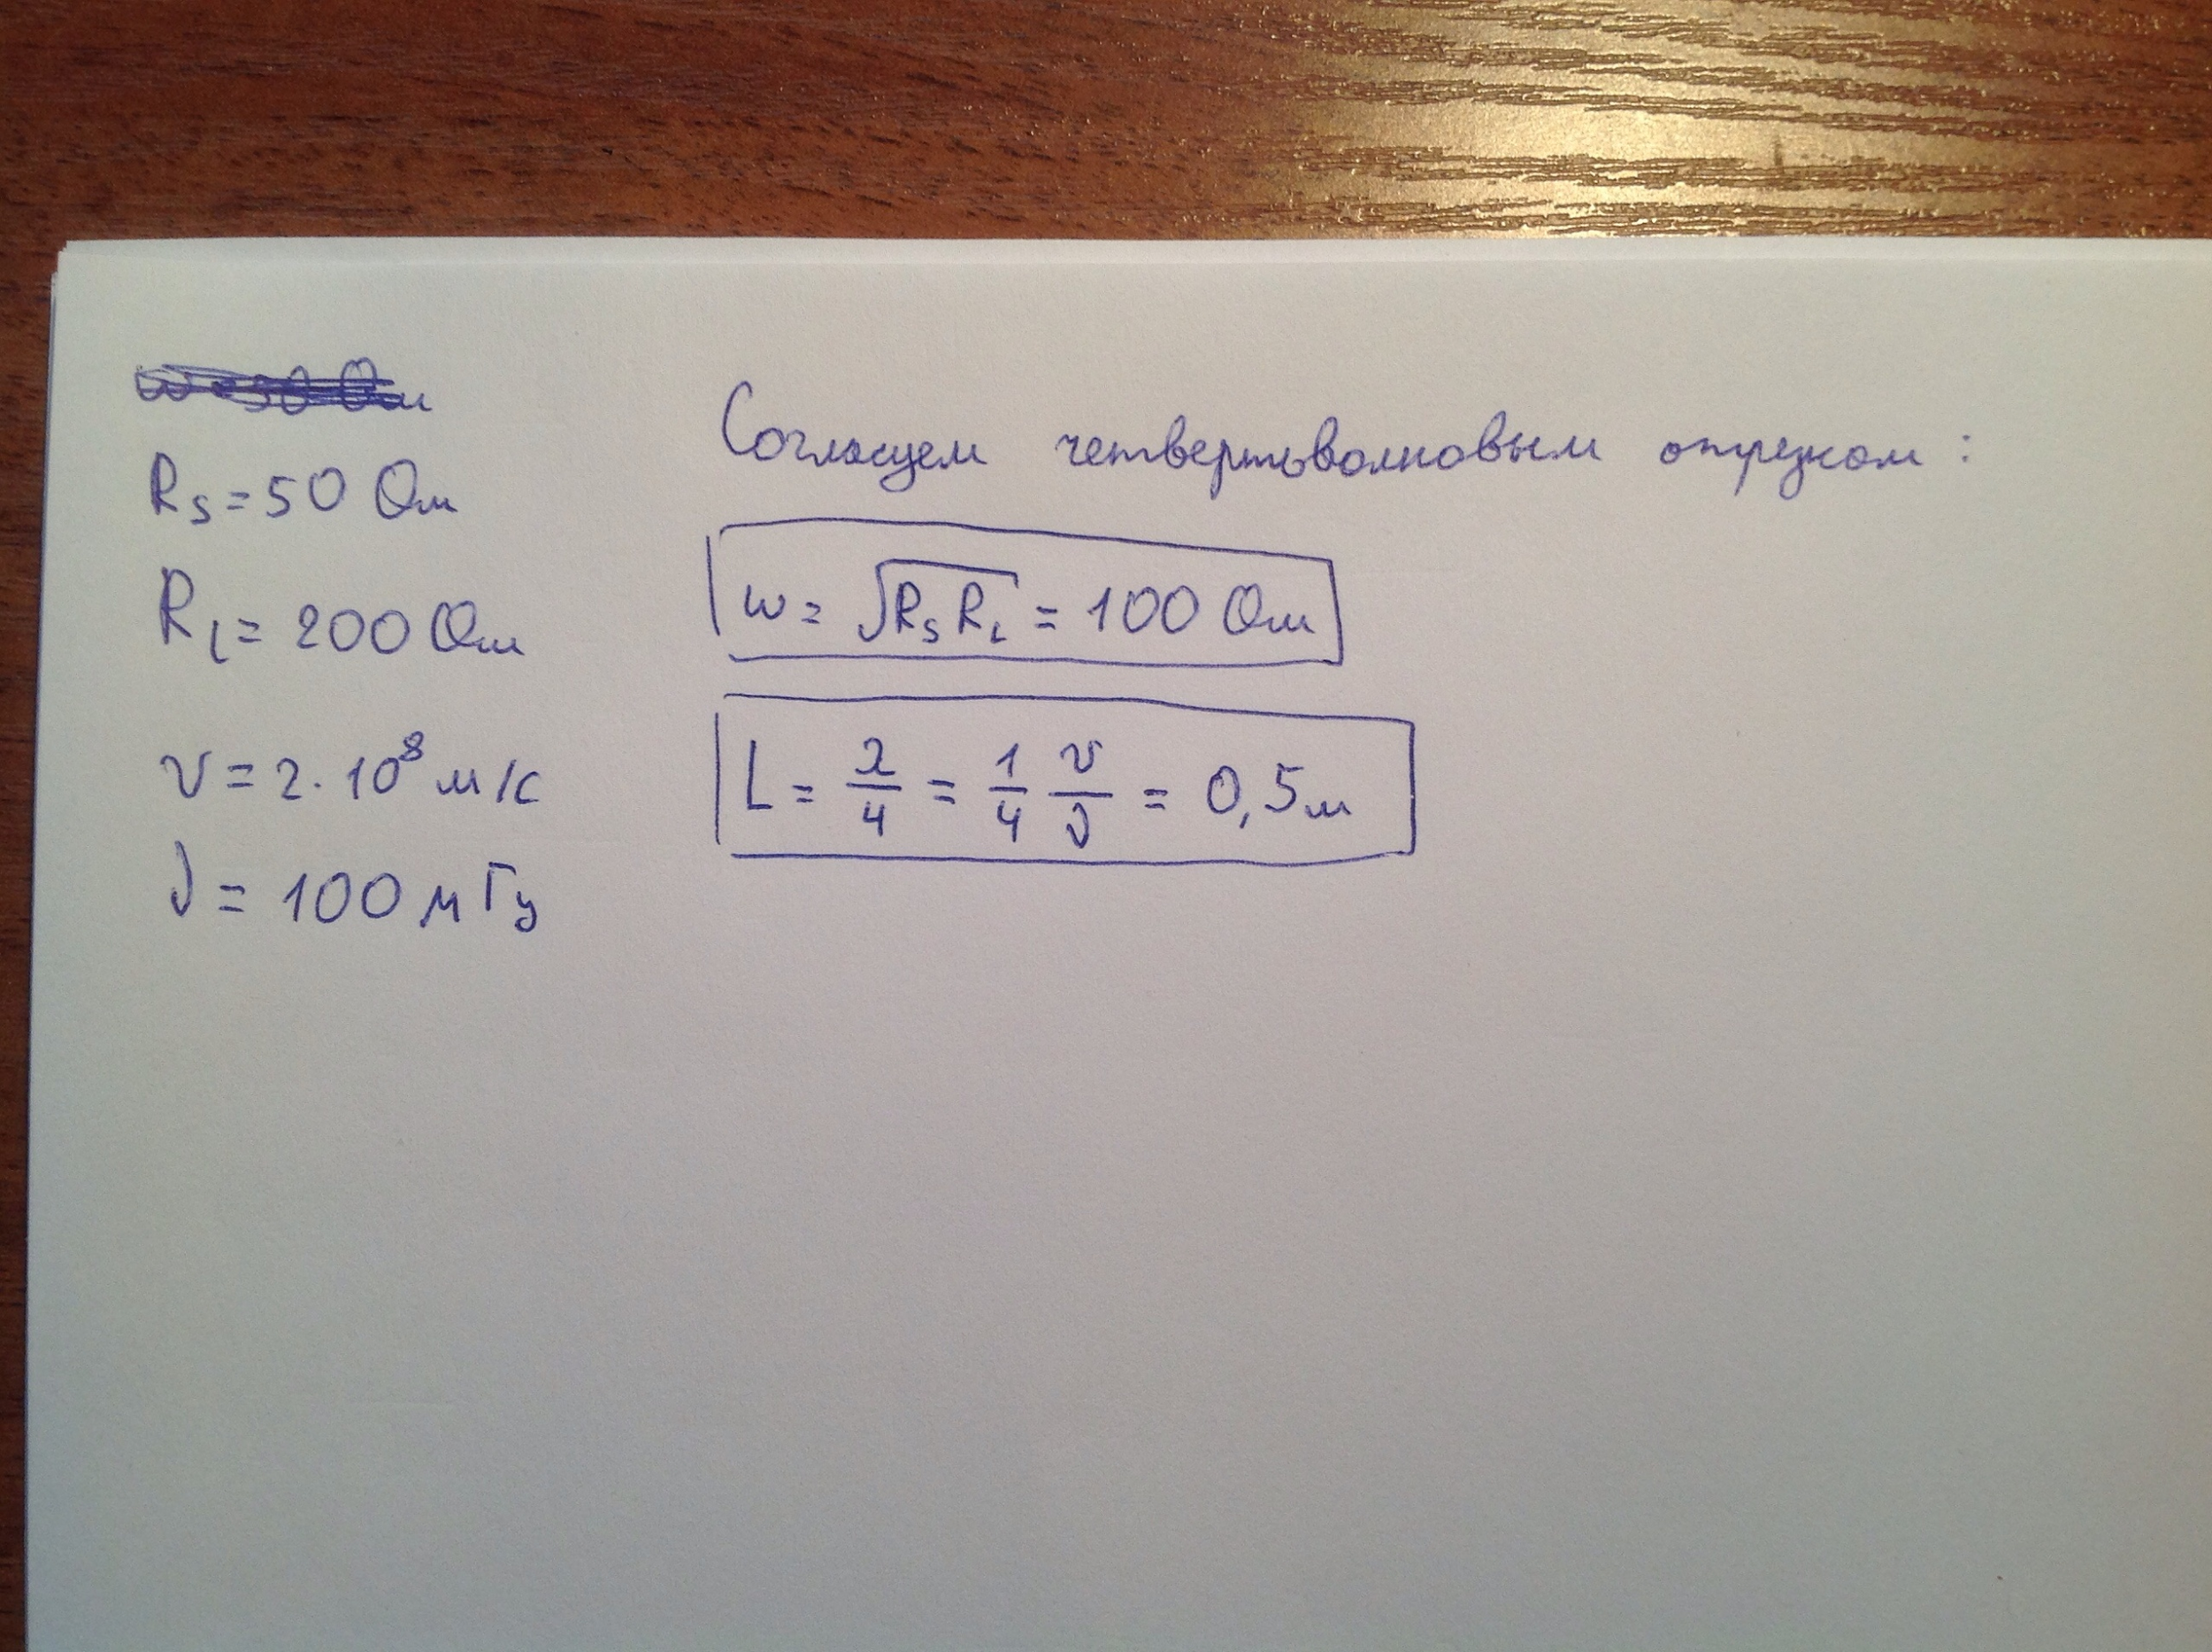 R_s = 50 Ом
R_L = 200 Ом
v = 2·10⁸ м/с
ν = 100 мГц
Согласуем четвертьволновым отрезком:
w = √(R_s R_L) = 100 Ом
L = λ/4 = 1/4 v/ν = 0,5м